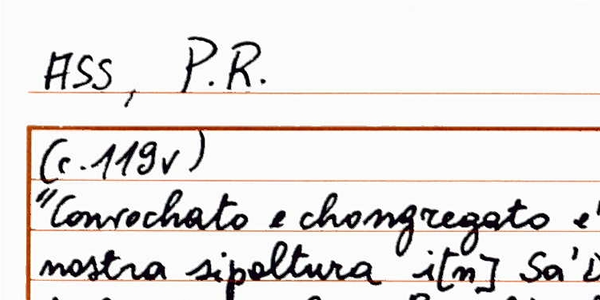 ASS, P.R.
(c. 119v)
"Convochato e chongregato e'
nostra sipoltura i[n] Sa'